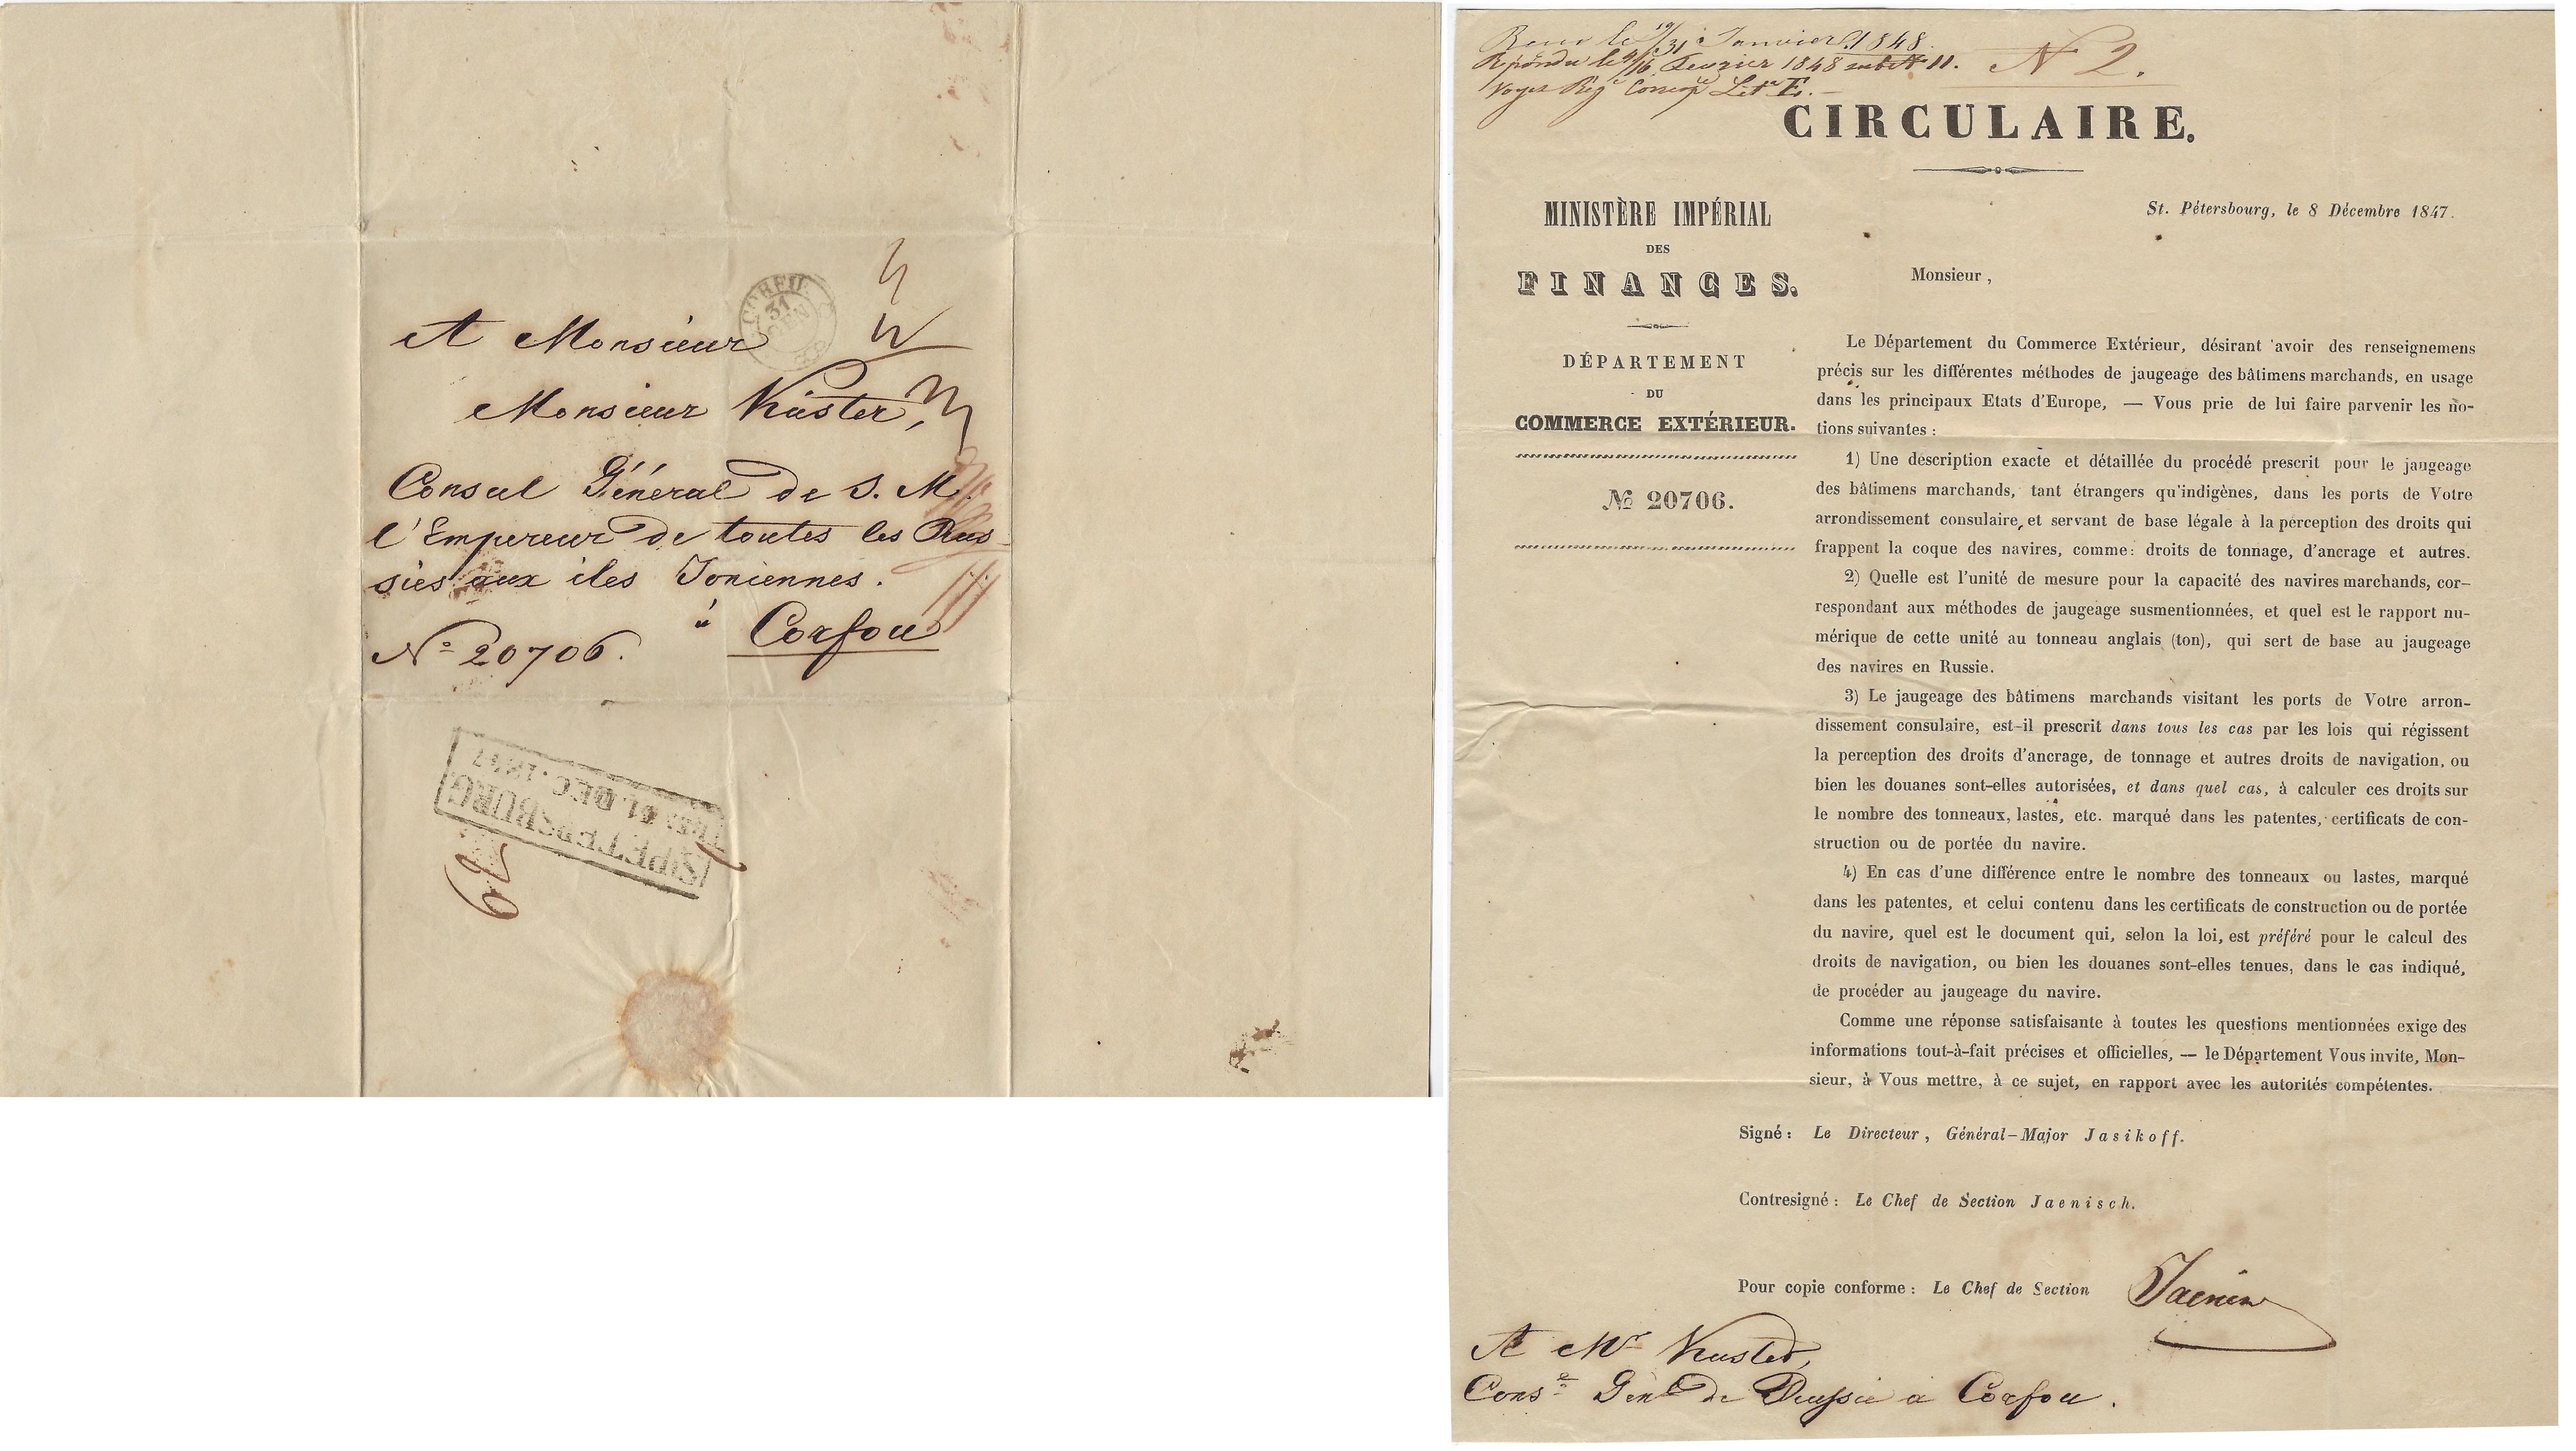 A Monsieur
Monsieur Küster,
Consul Général de S. M.
l'Empereur de toutes les Rus-
sies aux iles Ioniennes.
à Corfou
No 20706.
CORFU
31
S.PETERSBURG
DEC. 1847
Reçu le 19/31 Janvier 1848.
Répondu le 4/16 Fevrier 1848 sub No 11.
Voyez Reg Litr E.
N 2.
CIRCULAIRE.
MINISTÈRE IMPÉRIAL
DES
FINANCES.
DÉPARTEMENT
DU
COMMERCE EXTÉRIEUR.
№ 20706.
St. Pétersbourg, le 8 Décembre 1847.
Monsieur,
Le Département du Commerce Extérieur, désirant avoir des renseignemens
précis sur les différentes méthodes de jaugeage des bâtimens marchands, en usage
dans les principaux Etats d'Europe, — Vous prie de lui faire parvenir les no-
tions suivantes:
1) Une description exacte et détaillée du procédé prescrit pour le jaugeage
des bâtimens marchands, tant étrangers qu'indigènes, dans les ports de Votre
arrondissement consulaire, et servant de base légale à la perception des droits qui
frappent la coque des navires, comme: droits de tonnage, d'ancrage et autres.
2) Quelle est l'unité de mesure pour la capacité des navires marchands, cor-
respondant aux méthodes de jaugeage susmentionnées, et quel est le rapport nu-
mérique de cette unité au tonneau anglais (ton), qui sert de base au jaugeage
des navires en Russie.
3) Le jaugeage des bâtimens marchands visitant les ports de Votre arron-
dissement consulaire, est-il prescrit dans tous les cas par les lois qui régissent
la perception des droits d'ancrage, de tonnage et autres droits de navigation, ou
bien les douanes sont-elles autorisées, et dans quel cas, à calculer ces droits sur
le nombre des tonneaux, lastes, etc. marqué dans les patentes, certificats de con-
struction ou de portée du navire.
4) En cas d'une différence entre le nombre des tonneaux ou lastes, marqué
dans les patentes, et celui contenu dans les certificats de construction ou de portée
du navire, quel est le document qui, selon la loi, est préféré pour le calcul des
droits de navigation, ou bien les douanes sont-elles tenues, dans le cas indiqué,
de procéder au jaugeage du navire.
Comme une réponse satisfaisante à toutes les questions mentionnées exige des
informations tout-à-fait précises et officielles, — le Département Vous invite, Mon-
sieur, à Vous mettre, à ce sujet, en rapport avec les autorités compétentes.
Signé: Le Directeur, Général-Major Jasikoff.
Contresigné: Le Chef de Section Jaenisch.
Pour copie conforme: Le Chef de Section
A Mr Kuster,
Cons Génl de Russie a Corfou.